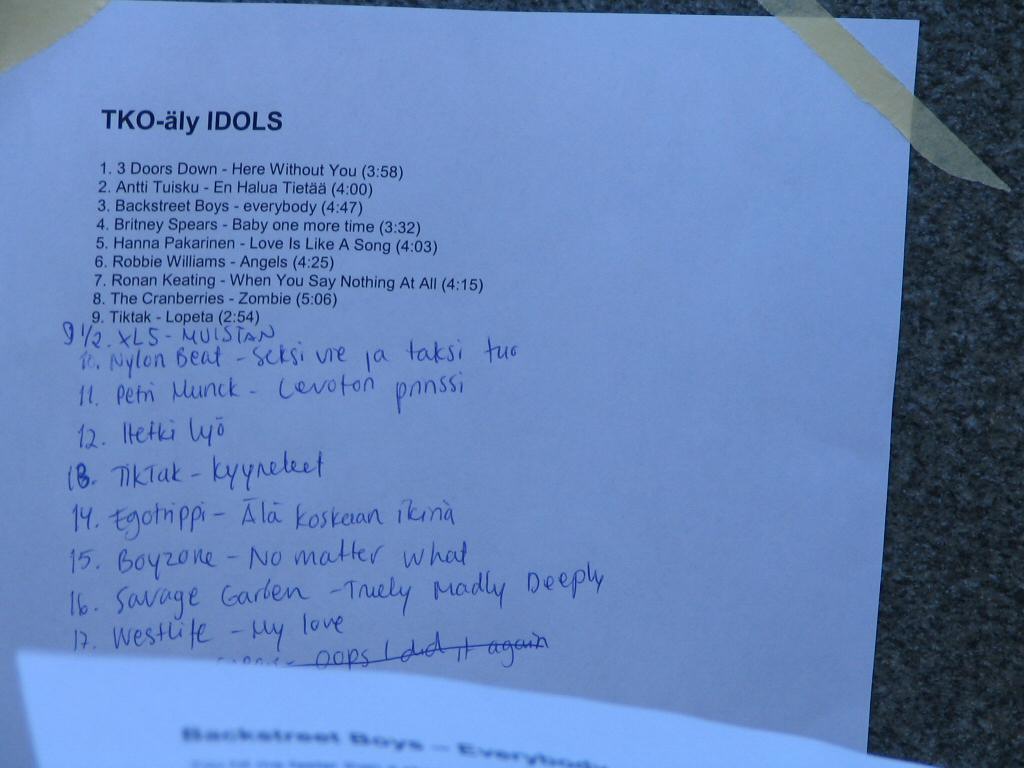 TKO-äly IDOLS
1. 3 Doors Down - Here Without You (3:58)
2. Antti Tuisku - En Halua Tietää (4:00)
3. Backstreet Boys - everybody (4:47)
4. Britney Spears - Baby one more time (3:32)
5. Hanna Pakarinen - Love Is Like A Song (4:03)
6. Robbie Williams - Angels (4:25)
7. Ronan Keating - When You Say Nothing At All (4:15)
8. The Cranberries - Zombie (5:06)
9. Tiktak - Lopeta (2:54)
9 1/2. XL5 - MUISTAN
10. Nylon Beat - Seksi vie ja taksi tuo
11. Petri Munck - Levoton prinssi
12. Hetki lyö
13. TikTak - Kyyneleet
14. Egotrippi - Älä koskaan ikinä
15. Boyzone - No matter what
16. Savage Garden - Truely Madly Deeply
17. Westlife - My love
- oops I did it again
Backstreet Boys – Everybody